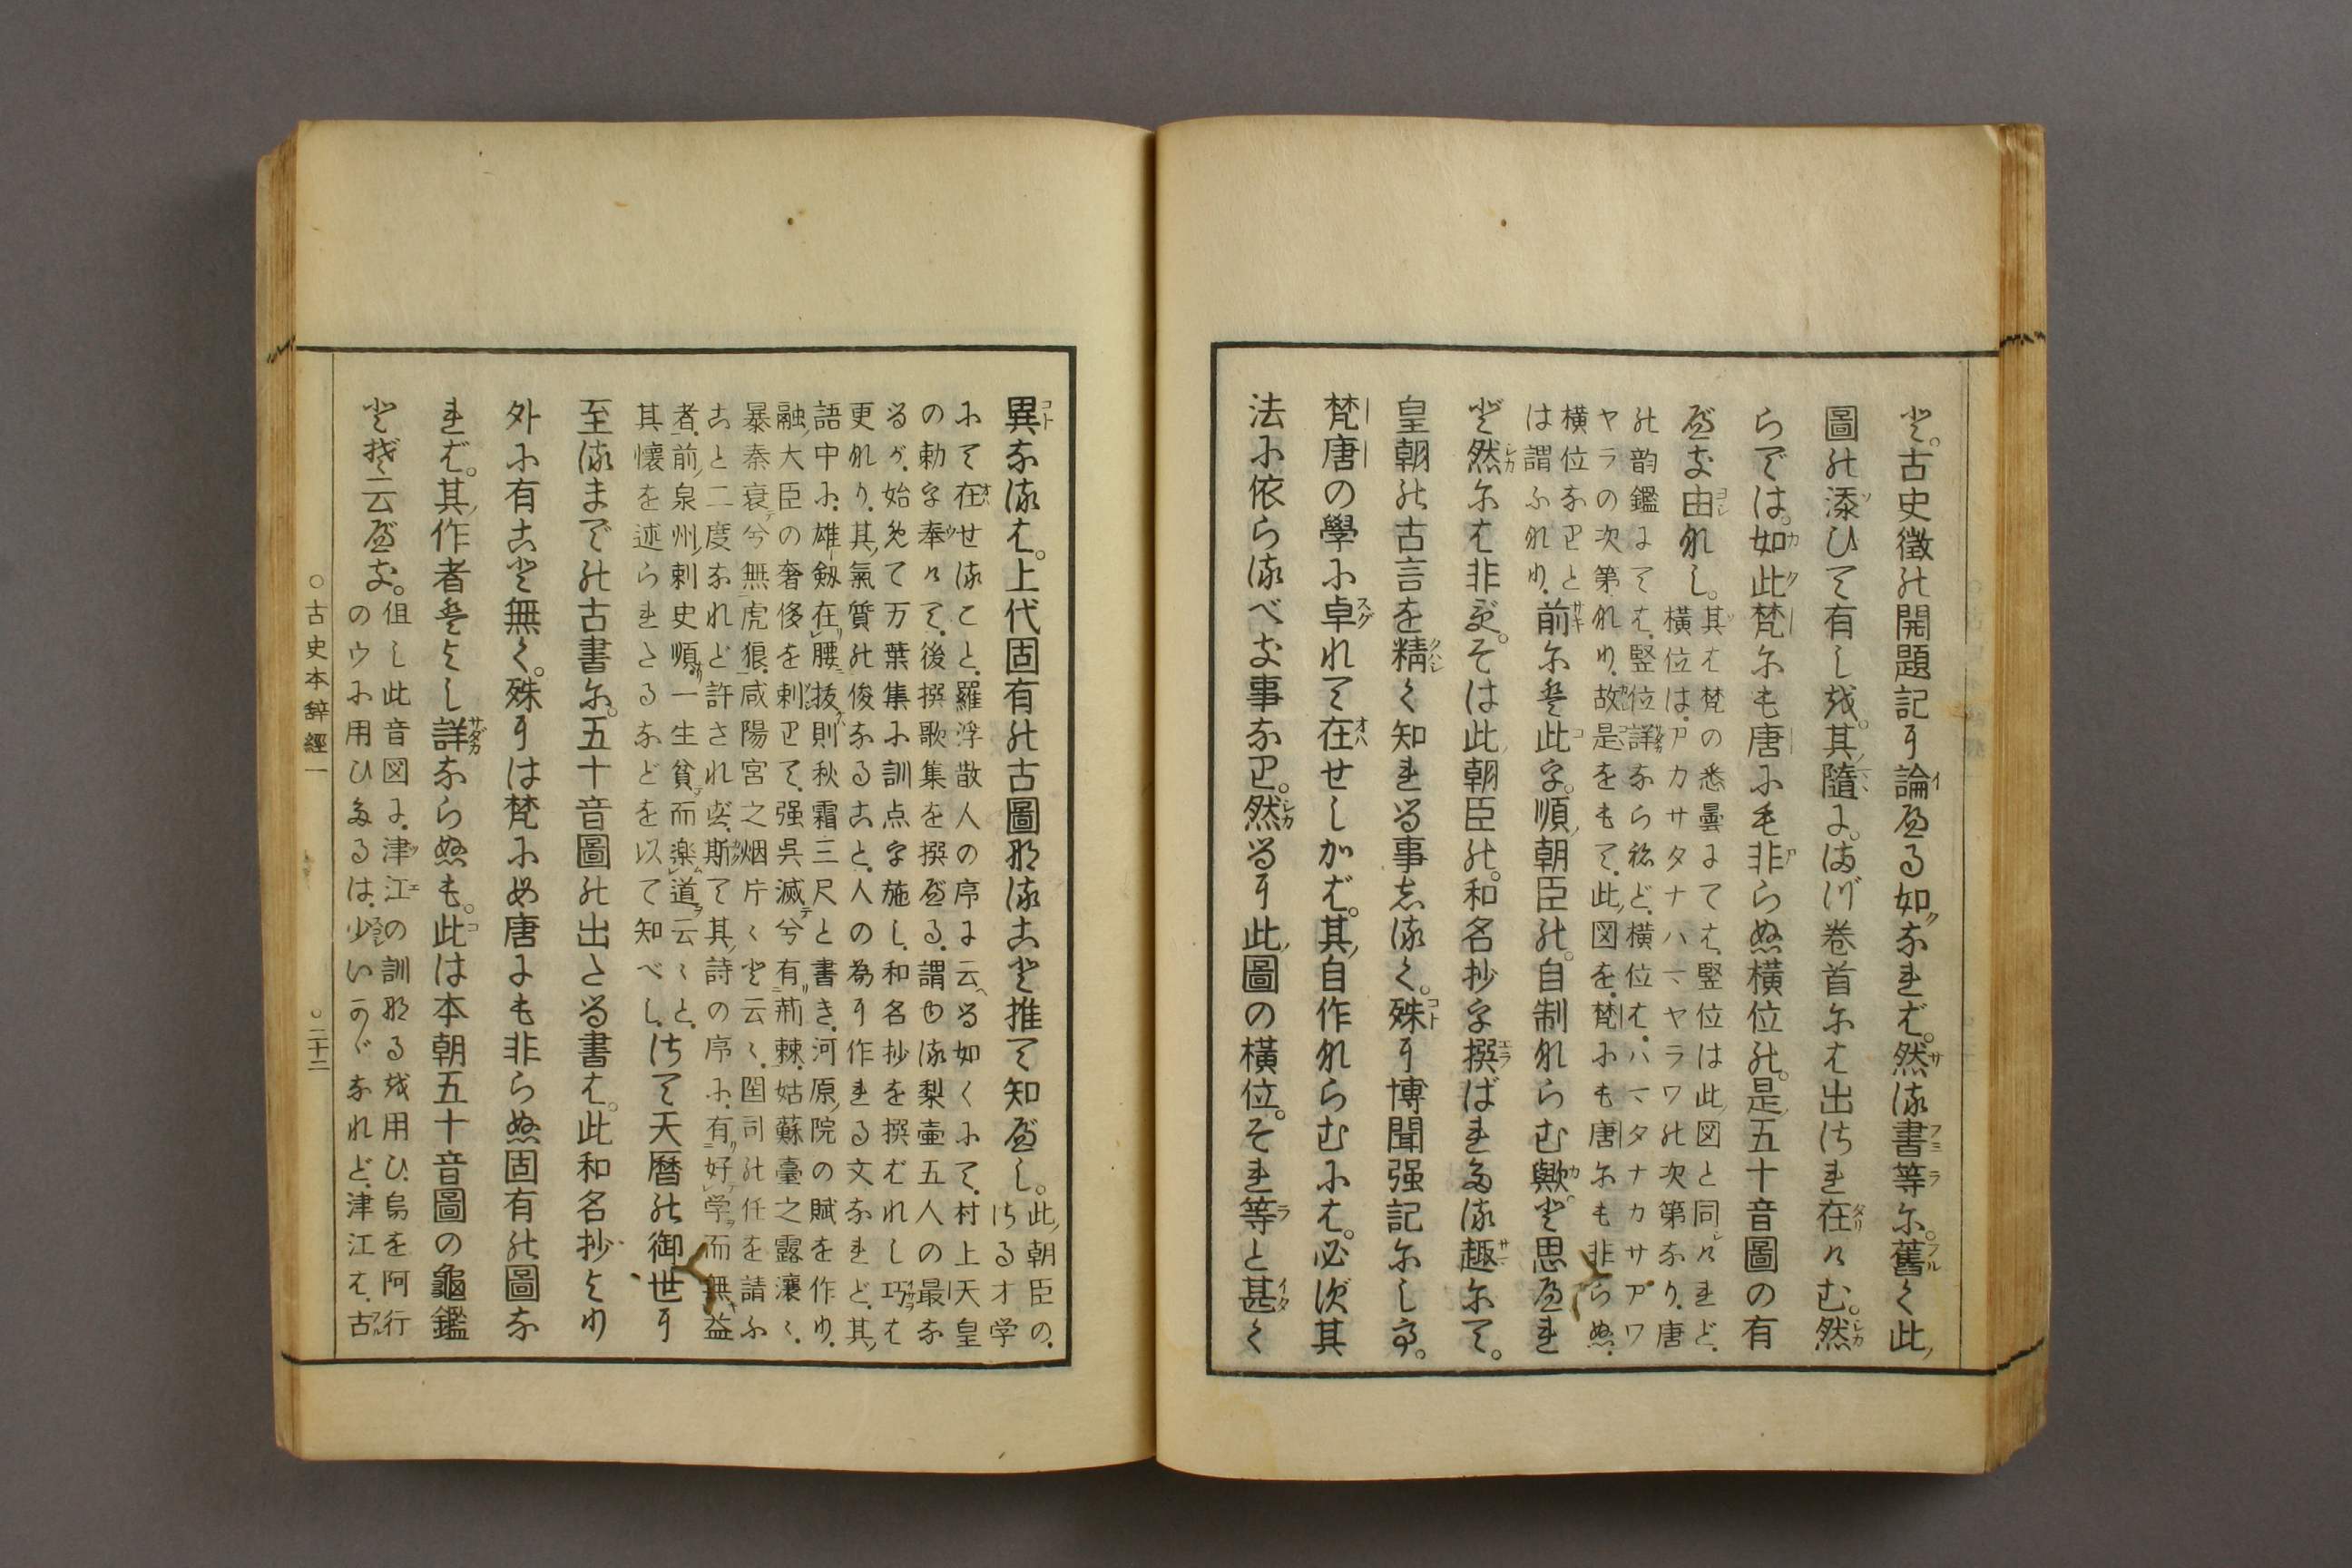 と。古史徴の開題記に論へる如なれば。然る書等に。舊く此
圖の添ひて有しを。其隨に。まづ卷首には出されたりけむ。然
らでは。如此梵にも唐にも非らぬ橫位の。是五十音圖の有
べき由なし。其は梵の悉曇にては、竪位は此図と同じけれど、
橫位は、アカサタナハマヤラワの次第なり、唐
の韵鑑にては、竪位詳ならねど、橫位は、ハマタナカサアワ
ヤラの次第なり、故是をもて、此図を、梵にも唐にも非らぬ、
橫位なりと
は謂ふなり、前には此字。順朝臣の。自制ならむ歟と思へれ
ど然には非ず。そは此朝臣の。和名抄字撰ばれたる趣にて。
皇朝の古言を精く知れる事しるく。殊に博聞强記にして。
梵唐の學に卓れて在せしかば。其自作ならむには。必ず其
法に依らるべき事なり。然るに此圖の橫位。それ等と甚く
異なるは。上代固有の古圖なること推て知べし。此朝臣の、
ける才学
にて在せること、羅浮散人の序に云る如くにて、村上天皇
の勅字奉けて、後撰歌集を撰べる、謂ゆる梨壷五人の最な
るが、始めて万葉集に訓点字施し、和名抄を撰ばれし巧は
更なり、其氣質の俊なること、人の為に作れる文なれど、其
語中に、雄劔在腰、抜則秋霜三尺と書き、河原院の賦を作り、
融大臣の奢侈を刺りて、强呉滅兮有荊棘、姑蘇臺之露瀼〻、
暴秦衰兮無虎狼、咸陽宮之烟片〻と云〻、圉司の任を請ふ
こと二度なれど許されず、斯て其詩の序に、有好学而無益
者、前泉州刺史順、一生貧而楽道云〻と、
其懷を述られたるなどを以て知べし、けて天曆の御世に
至るまでの古書に。五十音圖の出たる書は。此和名抄より
外に有こと無く。殊には梵にめ唐にも非らぬ固有の圖な
れば。其作者はよし詳ならぬも。此は本朝五十音圖の龜鑑
とぞ云べき。但し此音図に、津江の訓なるを用ひ、烏を阿行
のウに用ひたるは、少いかゞなれど、津江は、古
○古史本辭經一
○二十二